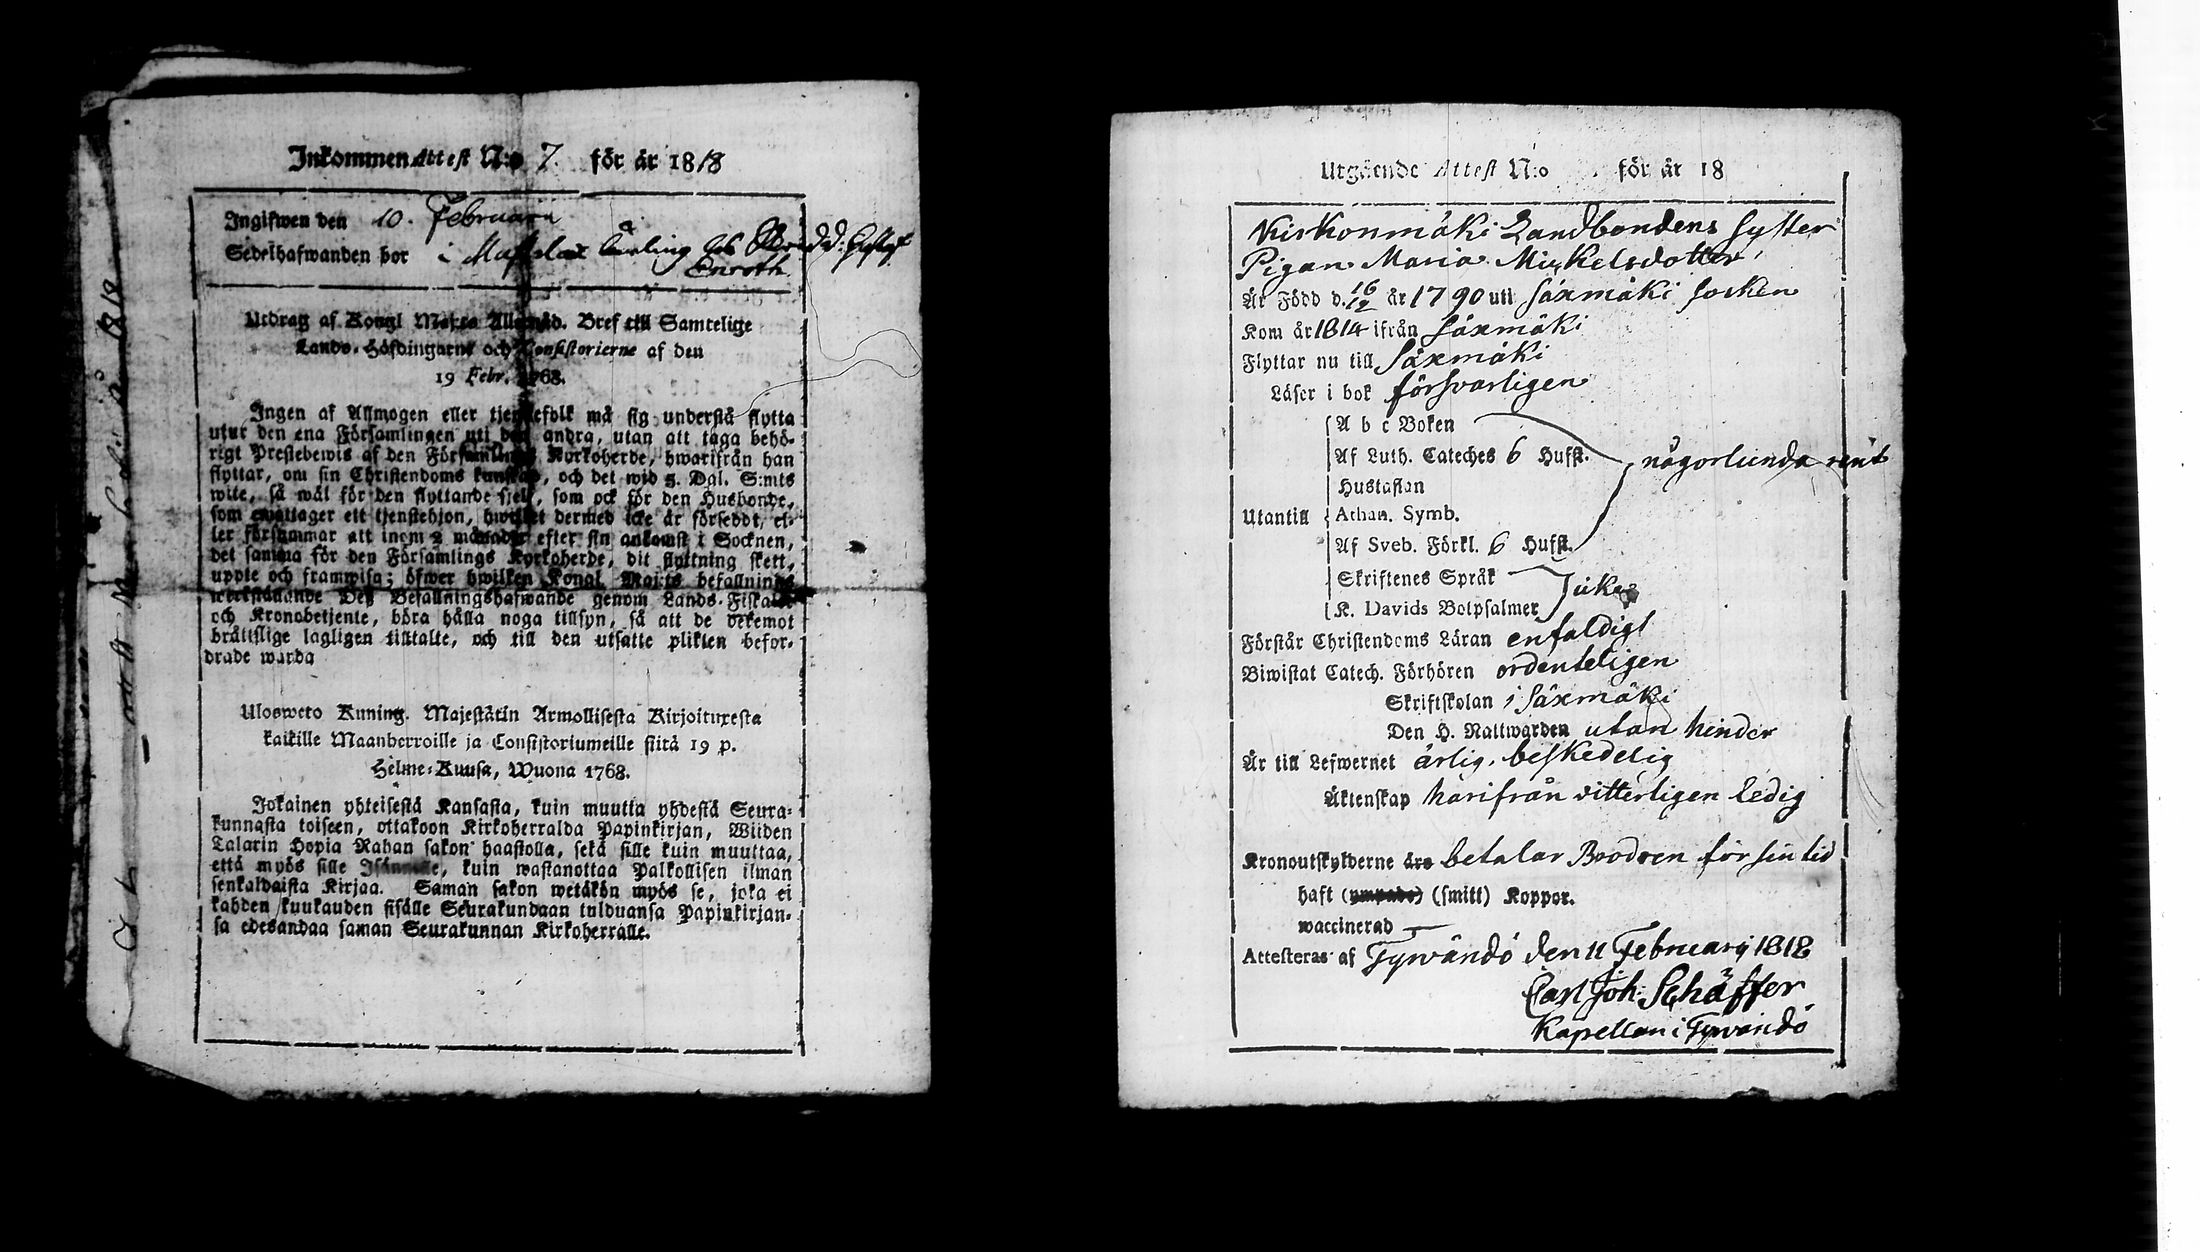 Inkommen Attest N:o 7. för år 1818
Ingifwen den 10. Februari
Sedelhafwanden bor i
Enroth
Utdrag af Kongl Maj:ts Allernåd. Bref till Samtelige
Lands-Höfdingarne och Consistorierne af den
19 Febr. 1768.
Ingen af Allmogen eller tjenstefolk må sig understå flytta
utur den ena Församlingen uti den andra, utan att taga behö-
rigt Prestebewis af den Församlings Kyrkoherde, hwarifrån han
flyttar, om sin Christendoms kunskap, och det wid 5. Dal. S:mts
wite, så wäl för den flyttande sjelf, som ock för den Husbonde,
som emottager ett tjenstehjon, hwilket dermed icke är försedt, el-
ler försummar att inom 2 månader efter sin ankomst i Socknen,
det samma för den Församlings Kyrkoherde, dit flyttning skett,
uppte och framwisa; öfwer hwilken Kongl. Maj:ts befallnings
werkställande Dess Befallningshafwande genom Lands-Fiskaler
och Kronobetjente, böra hålla noga tillsyn, så att de deremot
bråttslige lagligen tilltalte, och till den utsatte plikten befor-
drade warda
Ulosweto Kuning. Majestätin Armollisesta Kirjoituxesta
kaikille Maanherroille ja Consistoriumeille siitä 19 p.
Helme-Kuusa, Wuona 1768.
Jokainen yhteisestä Kansasta, kuin muutta yhdestä Seura-
kunnasta toiseen, ottakoon Kirkoherralda Papinkirjan, Wiiden
Talarin Hopia Rahan sakon haastolla, sekä sille kuin muuttaa,
että myös sille Isännälle, kuin wastanottaa Palkollisen ilman
senkaldaista Kirjaa. Saman sakon wetäkön myös se, joka ei
kahden kuukauden sisälle Seurakundaan tulduansa Papinkirjan-
sa edesandaa saman Seurakunnan Kirkoherralle.
Utgående Attest N:o för år 18
Kirkonmäki Landbondens syster
Pigan Maria Mickelsdotter,
Är Född d. 16/12 år 1790 uti Säxmäki socken
Kom år 1814 ifrån Säxmäki
Flyttar nu till Säxmäki
Läser i bok försvarligen
A b c Boken
Af Luth. Cateches 6 Hufst. någorlunda rent
Hustaflan
Utantill Athan. Symb.
Af Sveb. Förkl. 6 Hufst.
Skriftenes Språk
K. Davids Botpsalmer icke
Förstår Christendoms Läran enfaldigt
Biwistat Catech. Förhören ordenteligen
Skriftskolan i Säxmäki
Den H. Nattwarden utan hinder
Är till Lefwernet ärlig, beskedelig
Äktenskap härifrån vitterligen ledig
Kronoutskylderne äro betalar Brodren för sin tid
haft (ympade) (smitt) Koppor.
waccinerad —
Attesteras af Tyrwändö den 11 Februarij 1818
Carl Joh: Schäffer
Kapellan i Tyrwändö